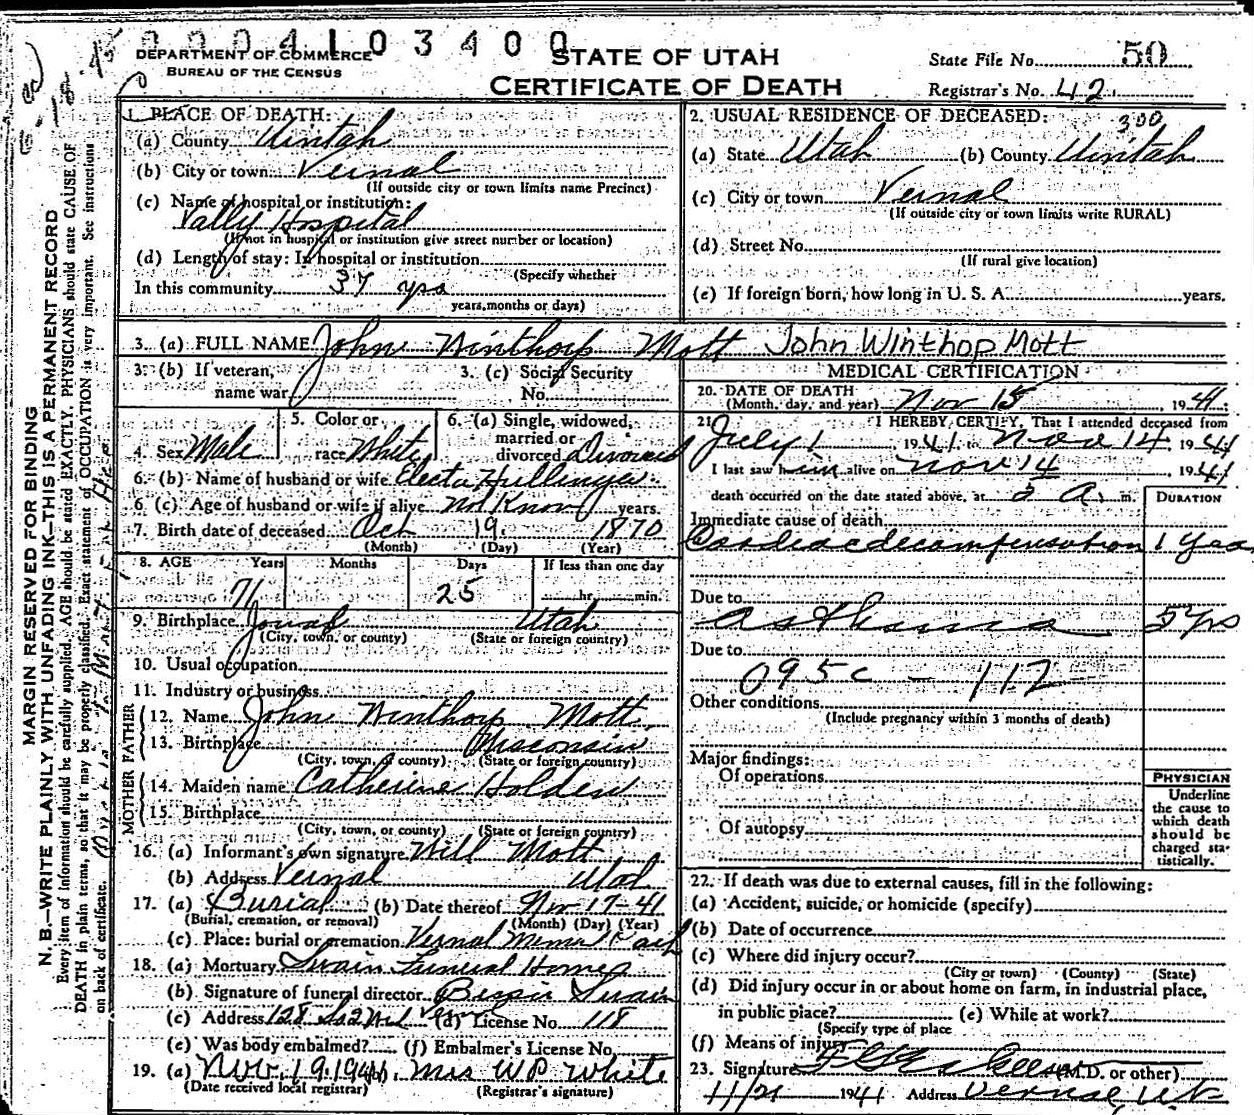 0004103400
DEPARTMENT OF COMMERCE
BUREAU OF THE CENSUS
STATE OF UTAH
CERTIFICATE OF DEATH
State File No. 50
Registrar's No. 42
MARGIN RESERVED FOR BINDING
N. B.—WRITE PLAINLY WITH UNFADING INK—THIS IS A PERMANENT RECORD
Every item of Information should be carefully supplied. AGE should be stated EXACTLY. PHYSICIANS should state CAUSE OF
DEATH in plain terms, so that it may be properly classified. Exact statement of OCCUPATION is very important. See instructions
on back of certificate.
1. PLACE OF DEATH:
(a) County Uintah
(b) City or town Vernal
(If outside city or town limits name Precinct)
(c) Name of hospital or institution:
Vally Hospital
(If not in hospital or institution give street number or location)
(d) Length of stay: In hospital or institution
(Specify whether
In this community 37 yrs
years, months or days)
2. USUAL RESIDENCE OF DECEASED: 300
(a) State Utah (b) County Uintah
(c) City or town Vernal
(If outside city or town limits write RURAL)
(d) Street No.
(If rural give location)
(e) If foreign born, how long in U. S. A. years.
3. (a) FULL NAME John Winthorp Mott John Winthop Mott
3. (b) If veteran, name war
3. (c) Social Security No.
4. Sex Male
5. Color or race White
6. (a) Single, widowed, married or divorced Divorced
6. (b) Name of husband or wife Electa Hullinger
6 (c). Age of husband or wife if alive Not Know years.
7. Birth date of deceased Oct 19 1870
(Month) (Day) (Year)
8. AGE Years Months Days If less than one day
71 25 hr. min.
9. Birthplace Utah
(City, town, or county) (State or foreign country)
10. Usual occupation
11. Industry or business
FATHER
12. Name John Winthorp Mott
13. Birthplace Wisconsin
(City, town, or county) (State or foreign country)
MOTHER
14. Maiden name Catherine Holden
15. Birthplace
(City, town, or county) (State or foreign country)
16. (a) Informant's own signature Will Mott
(b) Address Vernal Utah
17. (a) Burial (b) Date thereof Nov-17-41
(Burial, cremation, or removal) (Month) (Day) (Year)
(c) Place: burial or cremation Vernal Memorial Park
18. (a) Mortuary Swain Funeral Homes
(b) Signature of funeral director Swain
(c) Address 128 So 2 W Vernal (d) License No. 118
(e) Was body embalmed? (f) Embalmer's License No.
19. (a) Nov. 19. 1941. Mrs W P White
(Date received local registrar) (Registrar's signature)
MEDICAL CERTIFICATION
20. DATE OF DEATH
(Month, day, and year) Nov 15, 1941
21. I HEREBY CERTIFY, That I attended deceased from
July 1 1941 to Nov 14 1941
I last saw him alive on Nov 14 1941
death occurred on the date stated above, at 5 A. m.
DURATION
Immediate cause of death
Cardiac decompensation 1 Year
Due to
asthma 5 yrs
Due to
095c - 112
Other conditions
(Include pregnancy within 3 months of death)
Major findings:
Of operations
Of autopsy
PHYSICIAN
Underline
the cause to
which death
should be
charged sta-
tistically.
22. If death was due to external causes, fill in the following:
(a) Accident, suicide, or homicide (specify)
(b) Date of occurrence
(c) Where did injury occur?
(City or town) (County) (State)
(d) Did injury occur in or about home on farm, in industrial place,
in public place? (e) While at work?
(Specify type of place
(f) Means of injury
23. Signature (M.D. or other)
11/21 1941 Address Vernal, Ut